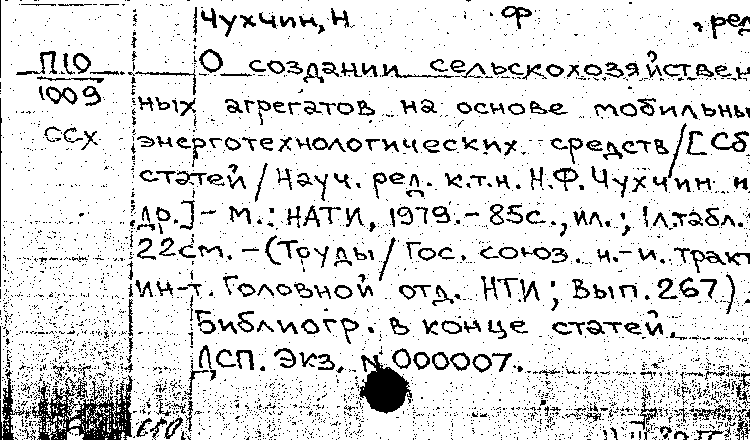 Чухчин, Н Ф , ред
П10
1009
ссх
О создании сельскохозяйствен
ных агрегатов на основе мобильны
энерготехнологических средств/[Сб
статей/Науч. ред. к.т.н. Н.Ф.Чухчин и
др.]- М.: НАТИ, 1979.- 85с., ил.; 1л.табл.
22см. -(Труды/Гос. союз. н.-и. тракт
ин-т. Головной отд. НТИ; Вып.267).
Библиогр. в конце статей.
ДСП. Экз. N 000007.